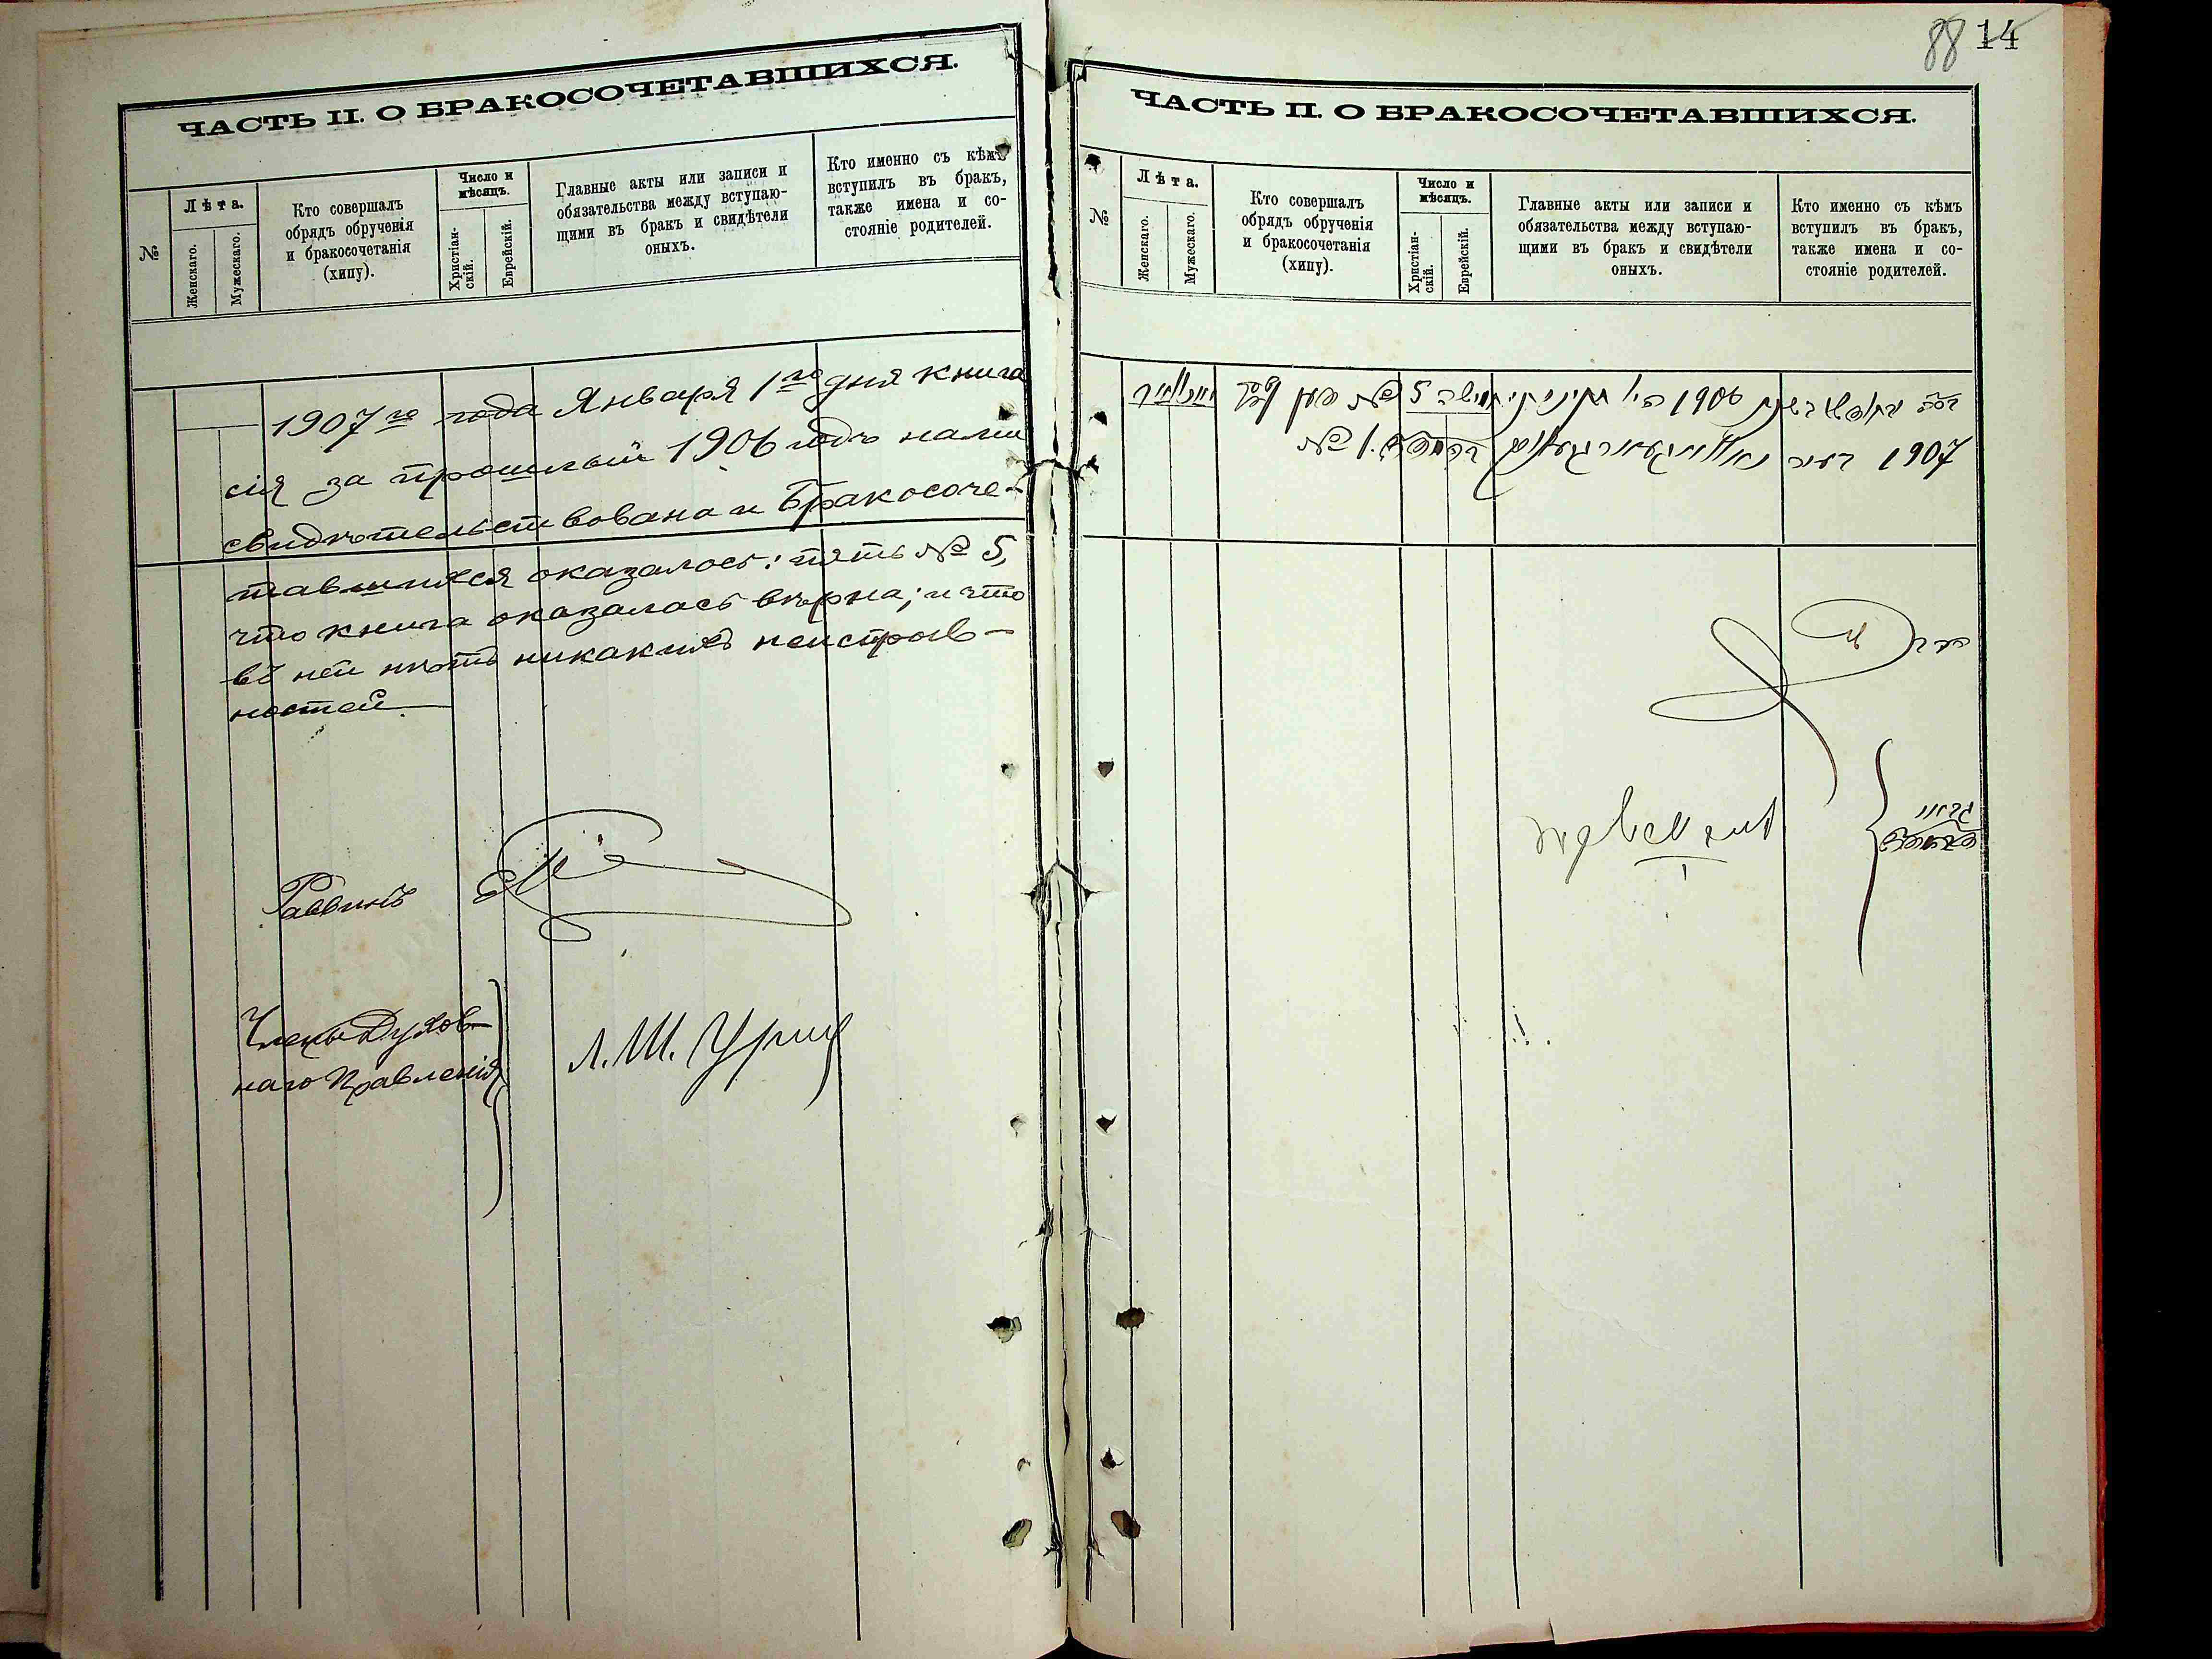 ЧАСТЬ II. О БРАКОСОЧЕТАВШИХСЯ.
№
Лѣта.
Женскаго.
Мужескаго.
Кто совершалъ
обрядъ обрученія
и бракосочетанія
(хипу).
Число и
мѣсяцъ.
Христіан-
скій.
Еврейскій.
Главные акты или записи и
обязательства между вступаю-
щими въ бракъ и свидѣтели
оныхъ.
Кто именно съ кѣмъ
вступилъ въ бракъ,
также имена и со-
стояніе родителей.
1907го года Января 1го дня книга
сія за прошлый 1906 годъ нами
свидѣтельствована и Бракосоче-
тавшихся оказалось: пять № 5,
что книга оказалась вѣрна; и что
въ ней нѣтъ никакихъ неисправ-
ностей
Раввинъ
Члены Духов-
наго Правленія
Л. Ш. Уриц
88 14
ЧАСТЬ II. О БРАКОСОЧЕТАВШИХСЯ.
№
Лѣта.
Женскаго.
Мужескаго.
Кто совершалъ
обрядъ обрученія
и бракосочетанія
(хипу).
Число и
мѣсяцъ.
Христіан-
скій.
Еврейскій.
Главные акты или записи и
обязательства между вступаю-
щими въ бракъ и свидѣтели
оныхъ.
Кто именно съ кѣмъ
вступилъ въ бракъ,
также имена и со-
стояніе родителей.
1906 5 №
1907 №1